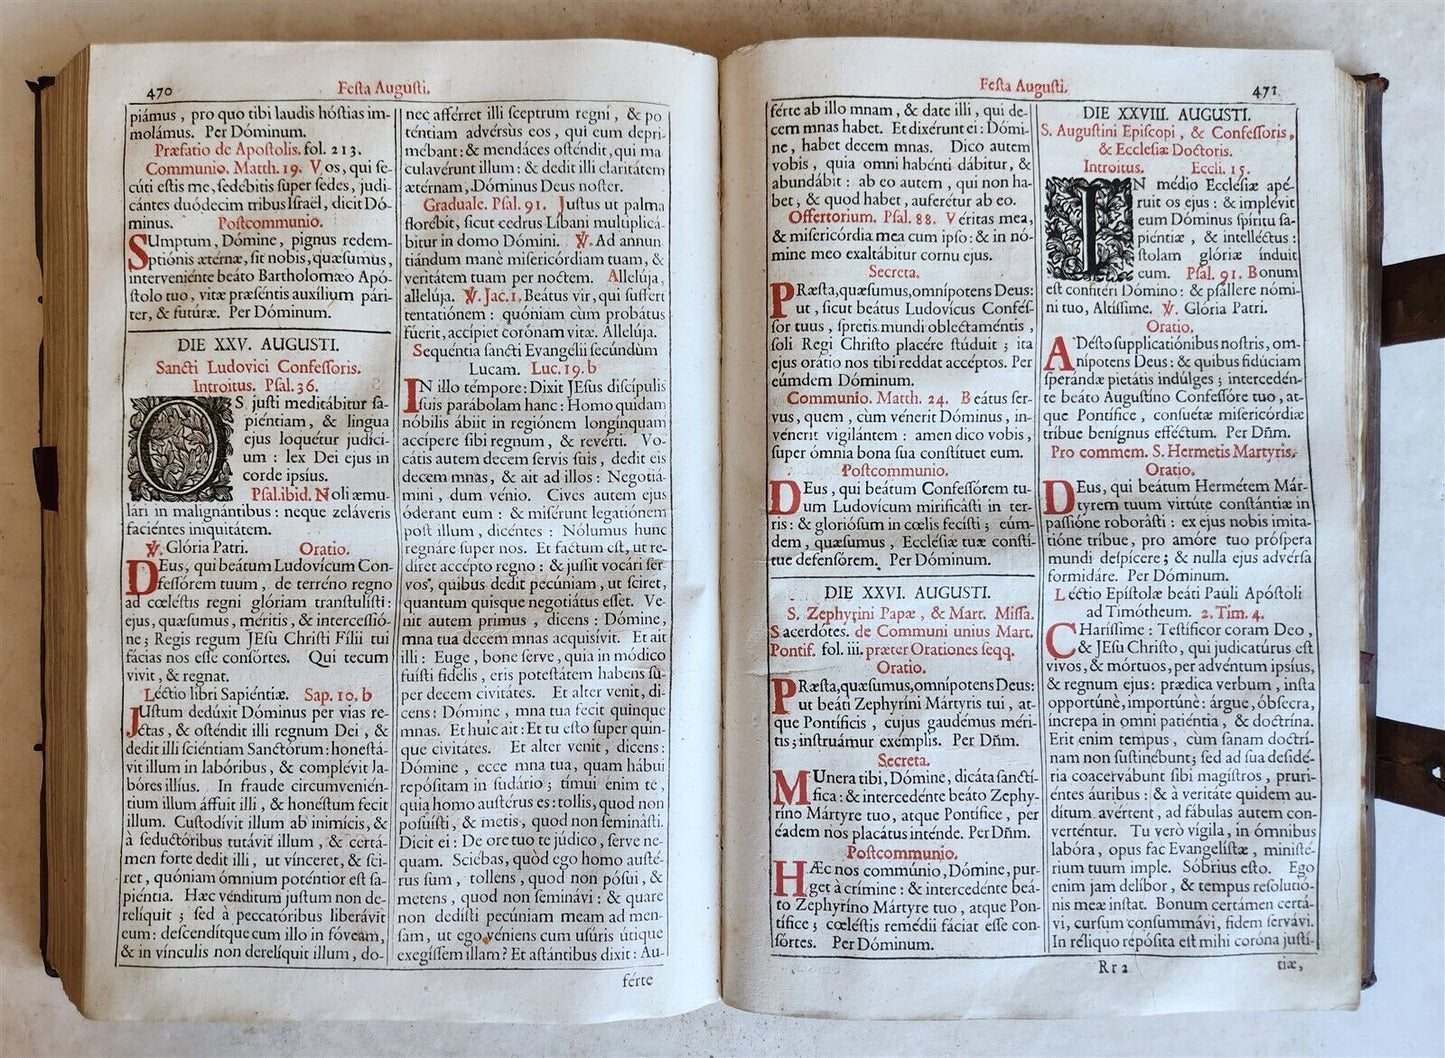 470
Festa Augusti.
piámus, pro quo tibi laudis hóstias im-
molámus. Per Dóminum.
Præfatio de Apostolis. fol. 213.
Communio. Matth. 19. Vos, qui se-
cúti estis me, sedébitis super sedes, judi-
cántes duódecim tribus Israel, dicit Dó-
minus. Postcommunio.
SUmptum, Dómine, pignus redem-
ptiónis æternæ, sit nobis, quæsumus,
interveniénte beáto Bartholomæo Apó-
stolo tuo, vitæ præséntis auxílium pári-
ter, & futúræ. Per Dóminum.
DIE XXV. AUGUSTI.
Sancti Ludovici Confessoris.
Introitus. Psal. 36.
OS justi meditábitur sa-
piéntiam, & lingua
ejus loquétur judíci-
um: lex Dei ejus in
corde ipsíus.
Psal. ibid. Noli æmu-
lári in malignántibus: neque zeláveris
faciéntes iniquitátem.
℣. Glória Patri. Oratio.
DEus, qui beátum Ludovícum Con-
fessórem tuum, de terréno regno
ad cœléstis regni glóriam transtulísti:
ejus, quæsumus, méritis, & intercessió-
ne; Regis regum JEsu Christi Fílii tui
fácias nos esse consórtes. Qui tecum
vivit, & regnat.
Léctio libri Sapiéntiæ. Sap. 10. b
JUstum dedúxit Dóminus per vias re-
ctas, & osténdit illi regnum Dei, &
dedit illi sciéntiam Sanctórum: honestá-
vit illum in labóribus, & complévit la-
bóres illíus. In fraude circumvenién-
tium illum áffuit illi, & honéstum fecit
illum. Custodívit illum ab inimícis, &
à seductóribus tutávit illum, & certá-
men forte dedit illi, ut vínceret, & sci-
ret, quóniam ómnium poténtior est sa-
piéntia. Hæc vénditum justum non de-
relíquit; sed à peccatóribus liberávit
eum: descendítque cum illo in fóveam,
& in vínculis non derelíquit illum, do-
nec afférret illi sceptrum regni, & po-
téntiam advérsùs eos, qui eum depri-
mébant: & mendáces osténdit, qui ma-
culavérunt illum: & dedit illi claritátem
ætérnam, Dóminus Deus noster.
Graduale. Psal. 91. Justus ut palma
florébit, sicut cedrus Líbani multiplicá-
bitur in domo Dómini. ℣. Ad annun
tiándum manè misericórdiam tuam, &
veritátem tuam per noctem. Allelúja,
allelúja. ℣. Jac. 1. Beátus vir, qui suffert
tentatiónem: quóniam cùm probátus
fúerit, accípiet corónam vitæ. Allelúja.
Sequéntia sancti Evangélii secúndùm
Lucam. Luc. 19. b
IN illo témpore: Dixit JEsus discípulis
suis parábolam hanc: Homo quidam
nóbilis ábiit in regiónem longínquam
accípere sibi regnum, & revérti. Vo-
cátis autem decem servis suis, dedit eis
decem mnas, & ait ad illos: Negotiá-
mini, dum vénio. Cives autem ejus
óderant eum: & misérunt legatiónem
post illum, dicéntes: Nólumus hunc
regnáre super nos. Et factum est, ut re-
díret accépto regno: & jussit vocári ser-
vos, quibus dedit pecúniam, ut sciret,
quantum quisque negotiátus esset. Ve-
nit autem primus, dicens: Dómine,
mna tua decem mnas acquisívit. Et ait
illi: Euge, bone serve, quia in módico
fuísti fidélis, eris potestátem habens su-
per decem civitátes. Et alter venit, di-
cens: Dómine, mna tua fecit quinque
mnas. Et huic ait: Et tu esto super quin-
que civitátes. Et alter venit, dicens:
Dómine, ecce mna tua, quam hábui
repósitam in sudário; tímui enim te,
quia homo austérus es: tollis, quod non
posuísti, & metis, quod non seminásti.
Dicit ei: De ore tuo te júdico, serve ne-
quam. Sciébas, quòd ego homo austé-
rus sum, tollens, quod non pósui, &
metens, quod non seminávi: & quare
non dedísti pecúniam meam ad men-
sam, ut ego véniens cum usúris útique
exegíssem illam? Et astántibus dixit: Au-
férte
Festa Augusti.
471
férte ab illo mnam, & date illi, qui de-
cem mnas habet. Et dixérunt ei: Dómi-
ne, habet decem mnas. Dico autem
vobis, quia omni habénti dábitur, &
abundábit: ab eo autem, qui non ha-
bet, & quod habet, auferétur ab eo.
Offertorium. Psal. 88. Véritas mea,
& misericórdia mea cum ipso: & in nó-
mine meo exaltábitur cornu ejus.
Secreta.
PRæsta, quæsumus, omnípotens Deus:
ut, sicut beátus Ludovícus Conféss-
sor tuus, spretis mundi oblectaméntis,
soli Regi Christo placére stúduit; ita
ejus orátio nos tibi reddat accéptos. Per
eúmdem Dóminum.
Communio. Matth. 24. Beátus ser-
vus, quem, cùm vénerit Dóminus, in-
vénerit vigilántem: amen dico vobis,
super ómnia bona sua constítuet eum.
Postcommunio.
DEus, qui beátum Confessórem tu-
um Ludovícum mirificásti in ter-
ris: & gloriósum in cœlis fecísti; eúm-
dem, quæsumus, Ecclésiæ tuæ constí-
tue defensórem. Per Dóminum.
DIE XXVI. AUGUSTI.
S. Zephyrini Papæ, & Mart. Missa.
Sacerdótes. de Communi unius Mart.
Pontif. fol. iii. præter Orationes seqq.
Oratio.
PRæsta, quæsumus, omnípotens Deus:
ut beáti Zephyríni Mártyris tui, at-
que Pontíficis, cujus gaudémus méri-
tis; instruámur exémplis. Per Dñm.
Secreta.
MUnera tibi, Dómine, dicáta sanctí-
fica: & intercedénte beáto Zephy-
ríno Mártyre tuo, atque Pontífice, per
éadem nos placátus inténde. Per Dñm.
Postcommunio.
HÆc nos commúnio, Dómine, pur-
get à crímine: & intercedénte beá-
to Zephyríno Mártyre tuo, atque Pon-
tífice; cœléstis remédii fáciat esse con-
sórtes. Per Dóminum.
DIE XXVIII. AUGUSTI.
S. Augustini Episcopi, & Confessoris,
& Ecclesiæ Doctoris.
Introitus. Eccli. 15.
IN médio Ecclésiæ apé-
ruit os ejus: & implévit
eum Dóminus spíritu sa-
piéntiæ, & intelléctus:
stolam glóriæ índuit
eum. Psal. 91. Bonum
est confitéri Dómino: & psállere nómi-
ni tuo, Altíssime. ℣. Glória Patri.
Oratio.
ADésto supplicatiónibus nostris, om-
nípotens Deus: & quibus fidúciam
sperándæ pietátis indúlges; intercedén-
te beáto Augustíno Confessóre tuo, at-
que Pontífice, consuétæ misericórdiæ
tríbue benígnus efféctum. Per Dñm.
Pro commem. S. Hermetis Martyris.
Oratio.
DEus, qui beátum Hermétem Már-
tyrem tuum virtúte constántiæ in
passióne roborásti: ex ejus nobis imita-
tióne tríbue, pro amóre tuo próspera
mundi despícere; & nulla ejus advérsa
formidáre. Per Dóminum.
Léctio Epístolæ beáti Pauli Apóstoli
ad Timótheum. 2. Tim. 4.
CHaríssime: Testíficor coram Deo,
& JEsu Christo, qui judicatúrus est
vivos, & mórtuos, per advéntum ipsíus,
& regnum ejus: prædica verbum, insta
opportúnè, importúnè: árgue, óbsecra,
íncrepa in omni patiéntia, & doctrína.
Erit enim tempus, cùm sanam doctrí-
nam non sustinébunt; sed ad sua desidé-
ria coacervábunt sibi magístros, pruri-
éntes áuribus: & à veritáte quidem au-
dítum avértent, ad fábulas autem con-
verténtur. Tu verò vígila, in ómnibus
labóra, opus fac Evangelístæ, ministé-
rium tuum imple. Sóbrius esto. Ego
enim jam delíbor, & tempus resolutió-
nis meæ instat. Bonum certámen certá-
vi, cursum consummávi, fidem servávi.
In réliquo repósita est mihi coróna justí-
Rr 2
tiæ,